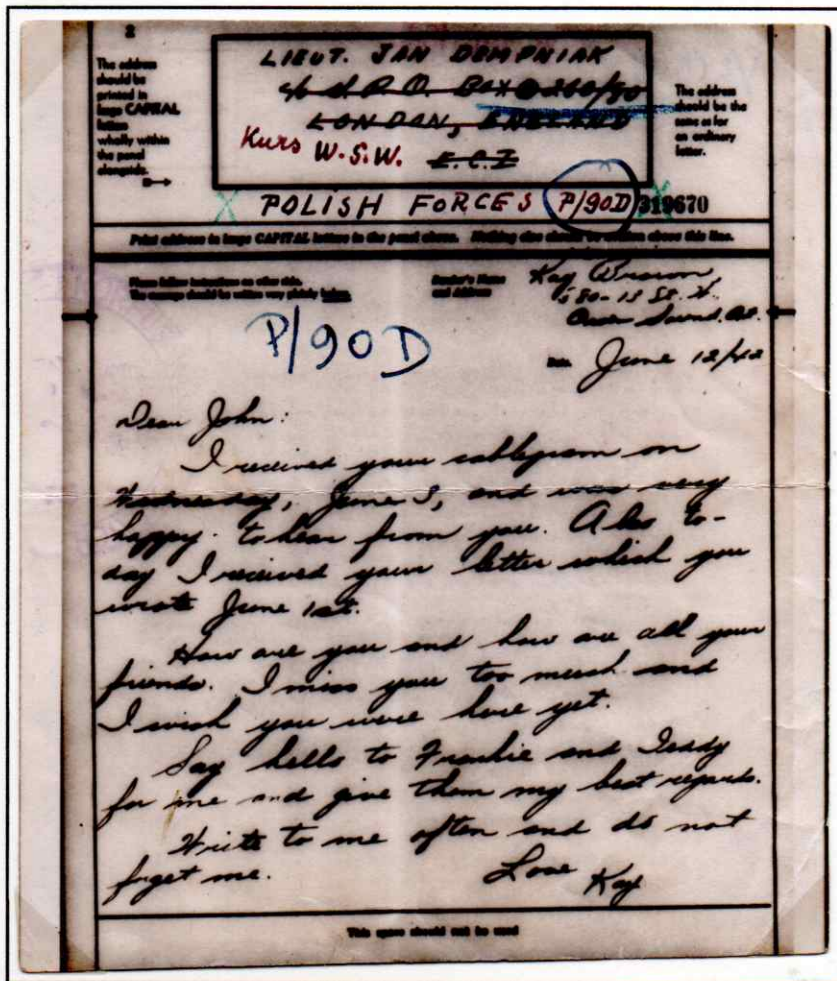 2
The address
should be
printed in
large CAPITAL
letters
wholly within
the panel
alongside.
LIEUT. JAN DOMPNIAK
c/o G.P.O. BOX 260/30
LONDON, ENGLAND
Kurs W.S.W. E.C.I
POLISH FORCES P/90D 319670
The address
should be the
same as for
an ordinary
letter.
Print address in large CAPITAL letters in the panel above. Nothing else should be written above this line.
Please follow instructions on other side.
The message should be written very plainly below.
Sender's Name
and Address
Kay Brown,
580-13 St. W.
Owen Sound. Ont.
P/90D
Date June 12/42
Dear John:
I received your cablegram on
Wednesday, June 3, and was very
happy to hear from you. Also to-
day I received your letter which you
wrote June 1st.
How are you and how are all your
friends. I miss you too much and
I wish you were here yet.
Say hello to Frankie and Teddy
for me and give them my best regards.
Write to me often and do not
forget me.
Love Kay
This space should not be used